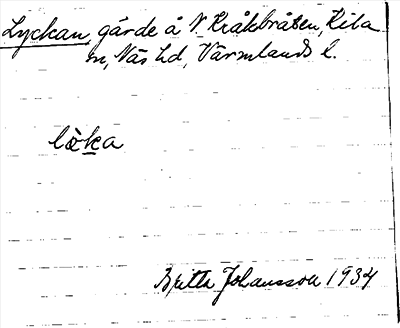 Lyckan, gärde å N. Kråkbråten, Kila
sn, Näs hd, Värmlands l.
lòka
Britta Johansson 1934